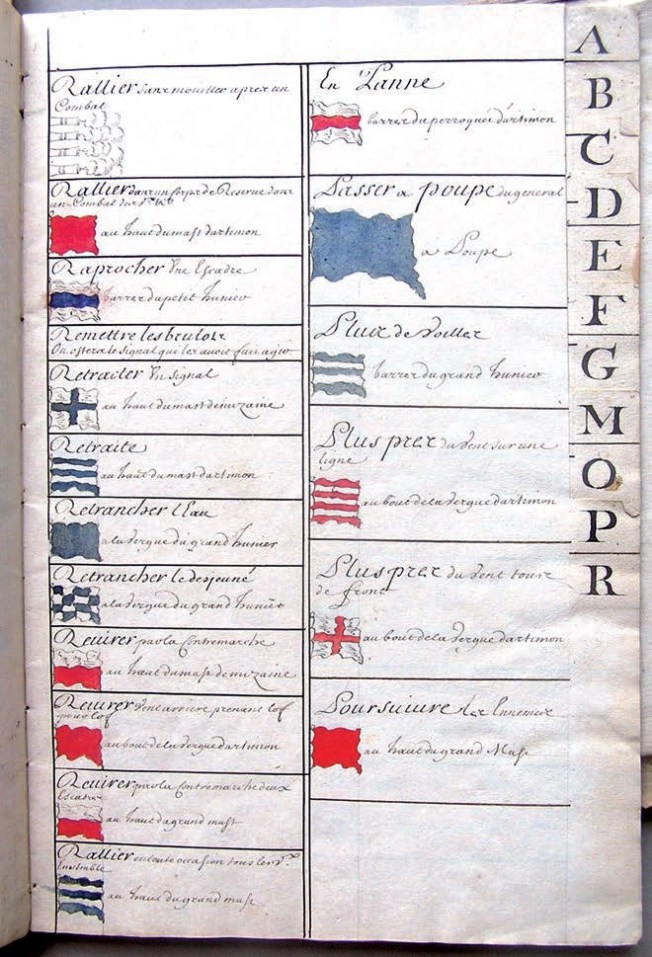 Rallier sans mouiller apres un
Combat
Rallier dans un Corps de Reserve dans
un Combat
au haut du mast dartimon
Raprocher Une Escadre
barrer du petit hunier
Remettre les brulots
On ostera le signal qui les avoit fait agir
Retraiter Un Signal
au haut du mast de mizaine
Retraite
au haut du mast dartimon
Retrancher l'Eau
a la Vergue du grand hunier
Retrancher le desjeuné
a la Vergue du grand hunier
Revirer par la Contremarche
au haut du mast de mizaine
Revirer Vent arriere prenant lof
pour lof
au bout de la Vergue dartimon
Revirer par la Contremarche deux
Escadres
au haut du grand mast
Rallier en toute occasion tous les
Ensemble
au haut du grand mast
En Panne
barrer du perroquet d'artimon
Passer a poupe du general
a Poupe
Plus de Voiller
barrer du grand hunier
Plus prez du Vent sur une
ligne
au bout de la Vergue dartimon
Plus prez du Vent tous
de front
au bout de la Vergue dartimon
Poursuivre les Ennemis
au haut du grand Mast
A
B
C
D
E
F
G
M
O
P
R